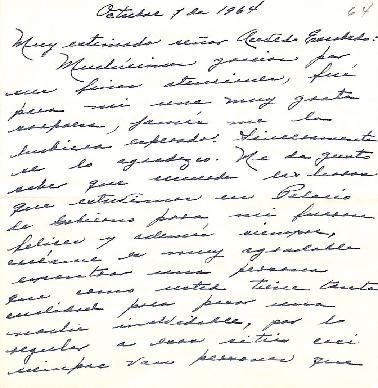 Octubre 7 de 1964
64
Muy estimado señor Acevedo Escobedo:
Muchísimas gracias por
sus finas atenciones, fué
para mi una muy grata
sorpresa, jamás me la
hubiera esperado. Sinceramente
se lo agradezco. Me da gusto
saber que cuando
que estuvimos en Palacio
de Gobierno para mi fueron
felices y además siempre,
es muy agradable
encontrar una persona
que como usted tiene tanta
cualidad para pasar una
noche inolvidable, por lo
regular a esos sitios casi
siempre van personas que